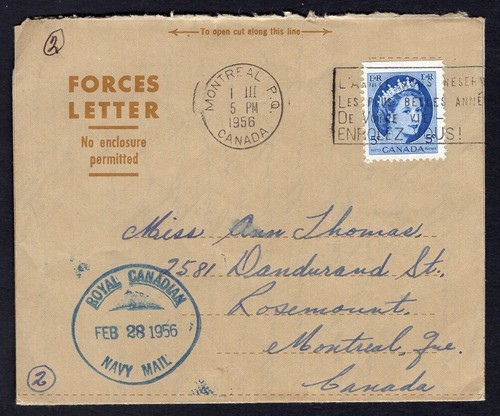 2
←To open cut along this line→
FORCES
LETTER
No enclosure
permitted
MONTREAL P.Q.
1 III
5 PM
1956
CANADA
L'A
RESERV
LES PLUS BELLES ANNÉ
DE VOTRE VI
ENRÔLEZ-VOUS!
E II R
E II R
5
CANADA
5
Miss Ann Thomas,
2581 Dandurand St.,
Rosemount,
Montreal, Que.
Canada
ROYAL CANADIAN
FEB 28 1956
NAVY MAIL
2